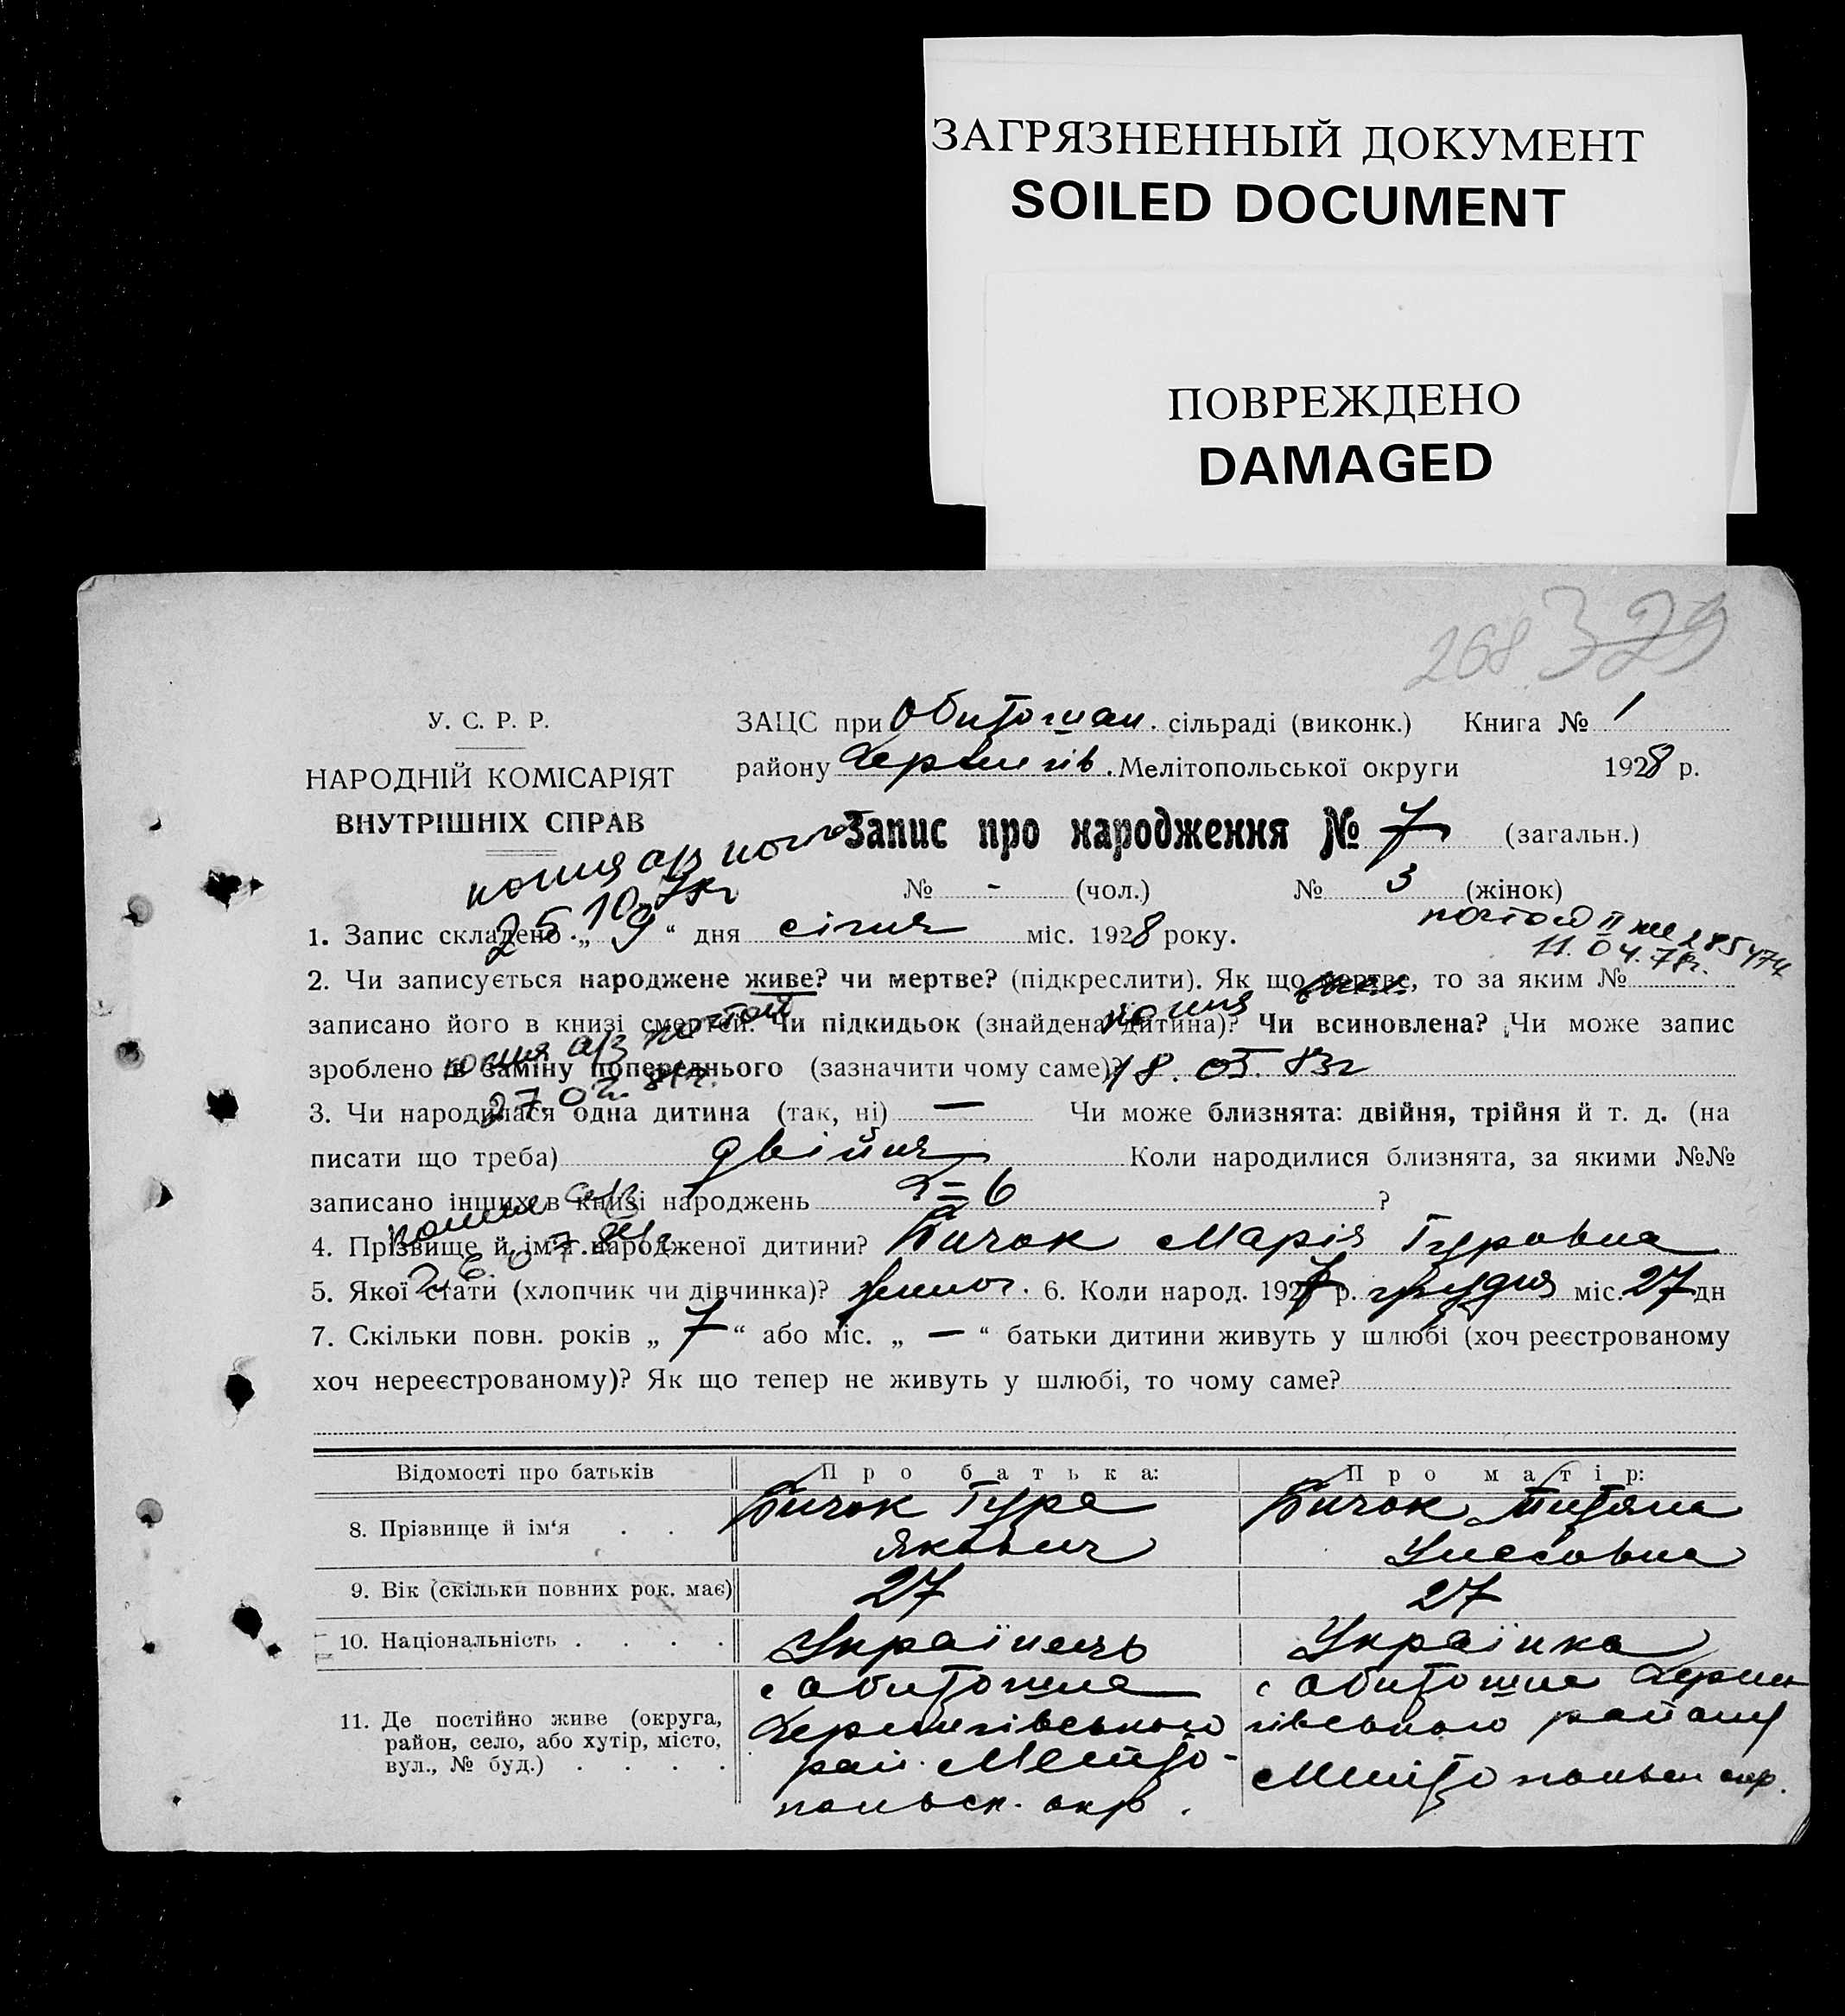 ЗАГРЯЗНЕННЫЙ ДОКУМЕНТ
SOILED DOCUMENT
ПОВРЕЖДЕНО
DAMAGED
268 329
У. С. Р. Р.
НАРОДНІЙ КОМІСАРІЯТ
ВНУТРІШНІХ СПРАВ
ЗАЦС при Обитошан. сільраді (виконк.) Книга № 1
району Чернигів. Мелітопольської округи 1928 р.
Запис про народження № 7 (загальн.)
№ - (чол.) № 3 (жінок)
копия а/з
25.10.
1. Запис складено „ 9 “ дня січня міс. 1928 року.
11.04.78г.
2. Чи записується народжене живе? чи мертве? (підкреслити). Як що мертве, то за яким №
записано його в книзі смертей. Чи підкидьок (знайдена дитина)? Чи всиновлена? Чи може запис
копия
копия а/з почтой
зроблено в заміну попереднього (зазначити чому саме)? 18.05.83г
27 02. 81г.
3. Чи народилася одна дитина (так, ні) — Чи може близнята: двійня, трійня й т. д. (на
писати що треба) двійня Коли народилися близнята, за якими №№
записано інших в книзі народжень 6 ?
копия а/з
4. Прізвище й ім'я народженої дитини? Бичок Марія Гуровна
5. Якої стати (хлопчик чи дівчинка)? жіноч. 6. Коли народ. 1927 р. грудня міс. 27 дн
7. Скільки повн. років „ 7 “ або міс. „ — “ батьки дитини живуть у шлюбі (хоч реєстрованому
хоч нереєстрованому)? Як що тепер не живуть у шлюбі, то чому саме?
Відомості про батьків Про батька: Про матір:
8. Прізвище й ім'я . . Бичок Гура Якович Бичок Титяна
9. Вік (скільки повних рок. має) 27 27
10. Національність . . . . Українець Українка
11. Де постійно живе (округа,
район, село, або хутір, місто,
вул., № буд.) . . . .
с Обитошна
Чернигівського
рай. Меліто-
польск. окр.
с Обитошна Черни-
гівського району
Мелітопольськ окр.